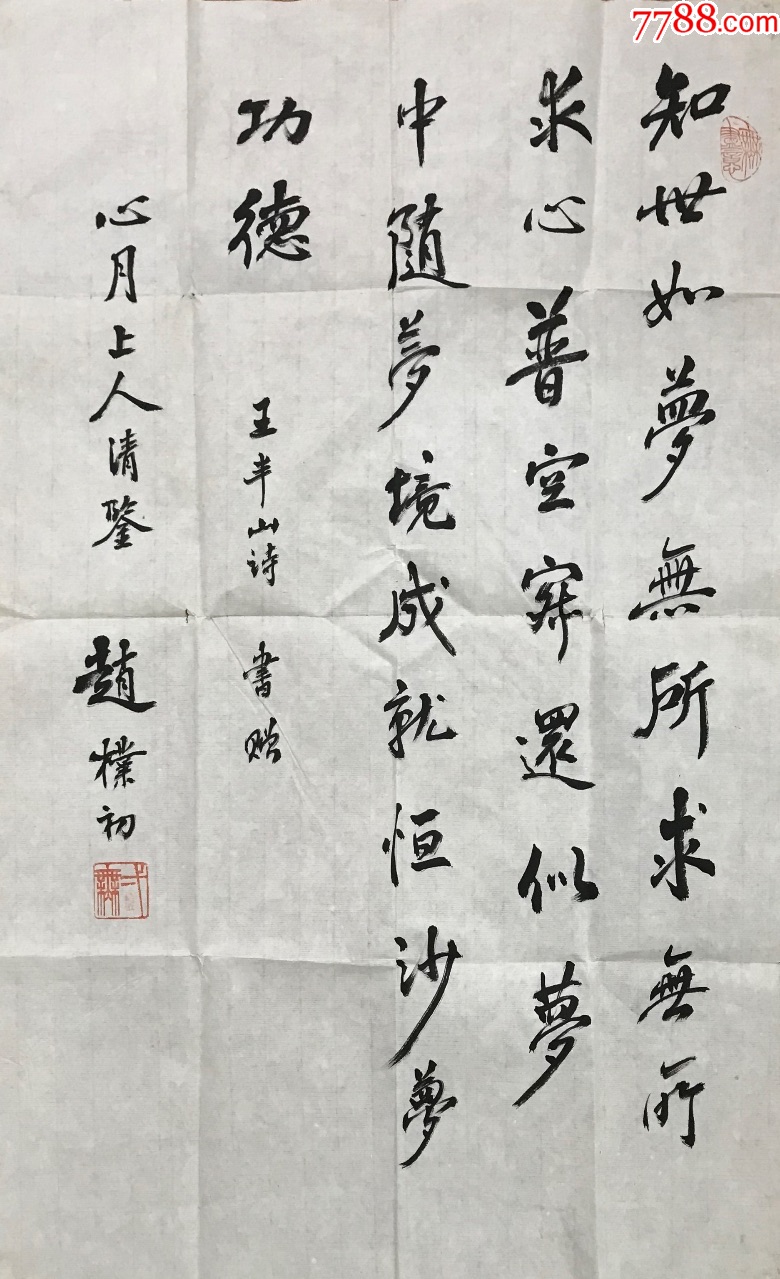 7788.com
知世如夢無所求無所
求心普空寂還似夢
中随夢境成就恒沙夢
功德
王半山诗 書赠
心月上人清鑒
趙樸初